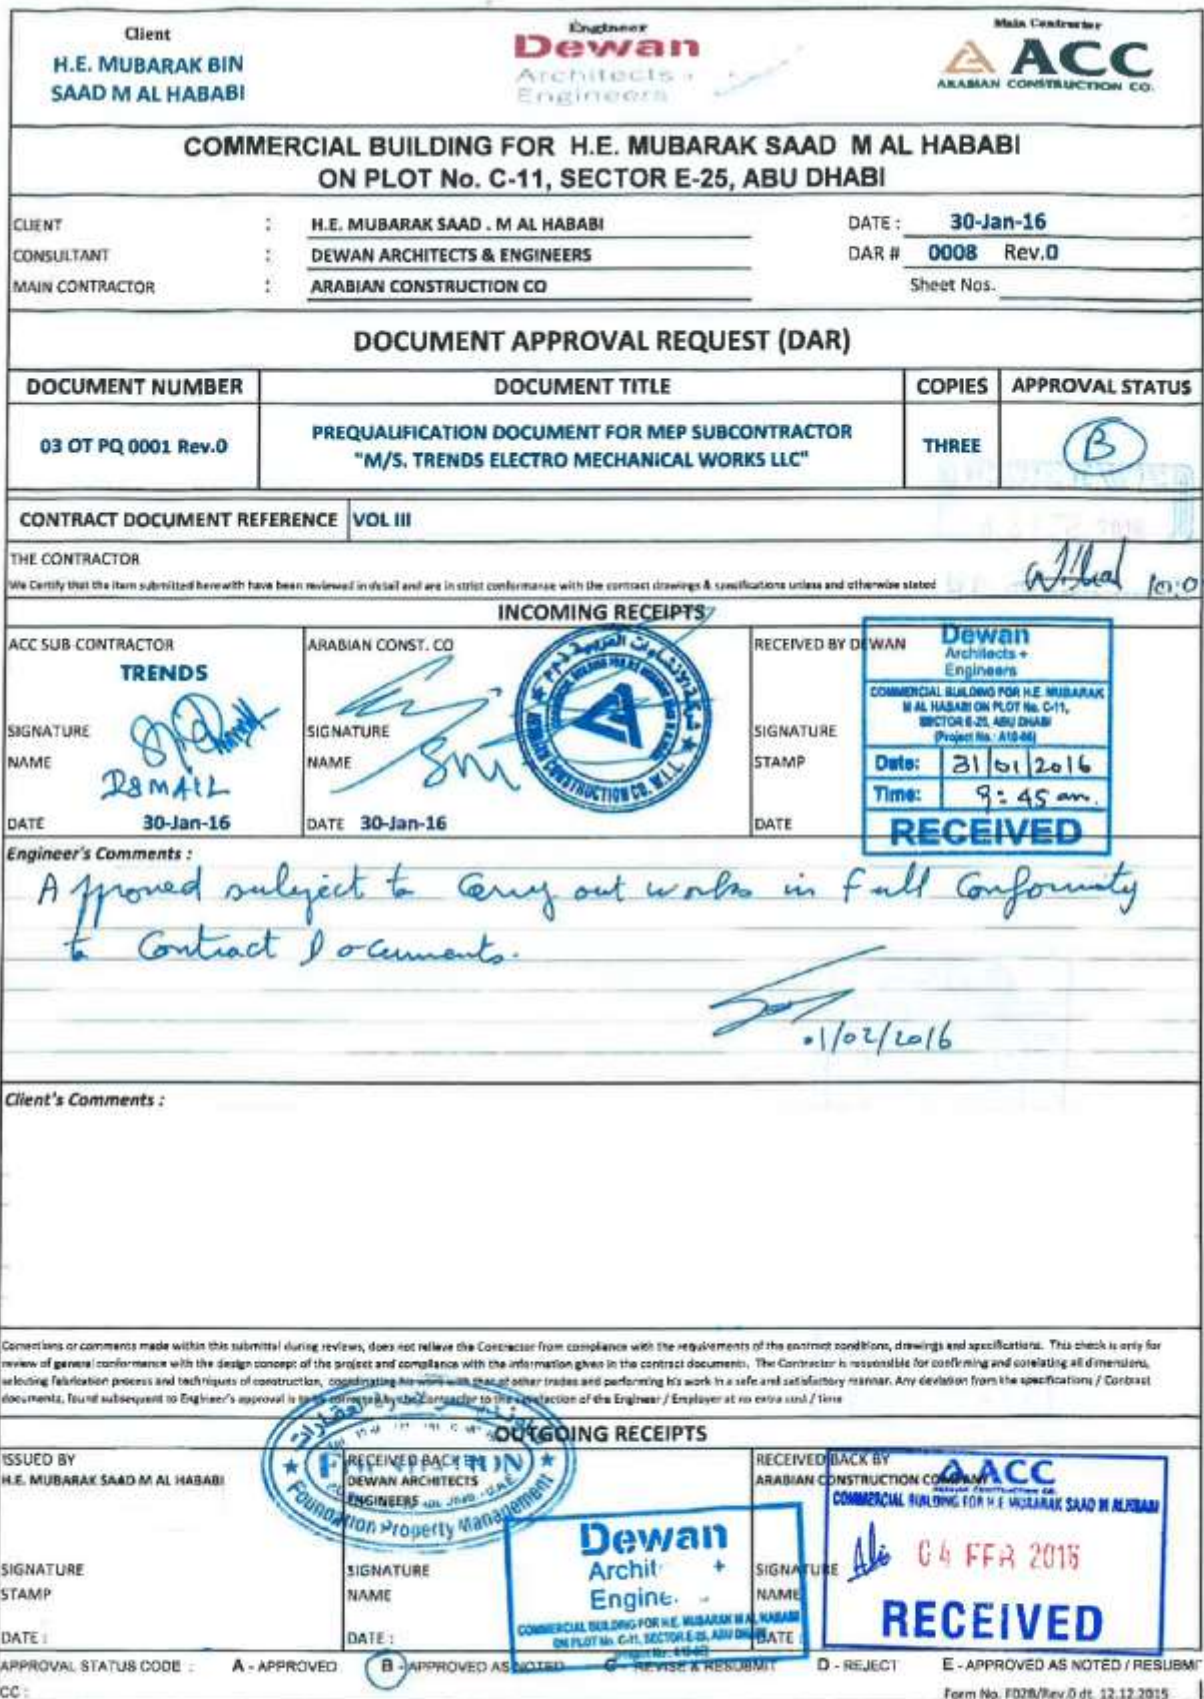 Client
H.E. MUBARAK BIN
SAAD M AL HABABI
Engineer
Dewan
Architects +
Engineers
Main Contractor
ACC
ARABIAN CONSTRUCTION CO.
COMMERCIAL BUILDING FOR H.E. MUBARAK SAAD M AL HABABI
ON PLOT No. C-11, SECTOR E-25, ABU DHABI
CLIENT : H.E. MUBARAK SAAD . M AL HABABI DATE : 30-Jan-16
CONSULTANT : DEWAN ARCHITECTS & ENGINEERS DAR # 0008 Rev.0
MAIN CONTRACTOR : ARABIAN CONSTRUCTION CO Sheet Nos.
DOCUMENT APPROVAL REQUEST (DAR)
DOCUMENT NUMBER DOCUMENT TITLE COPIES APPROVAL STATUS
03 OT PQ 0001 Rev.0
PREQUALIFICATION DOCUMENT FOR MEP SUBCONTRACTOR
"M/S. TRENDS ELECTRO MECHANICAL WORKS LLC"
THREE
B
CONTRACT DOCUMENT REFERENCE VOL III
THE CONTRACTOR
We Certify that the item submitted herewith have been reviewed in detail and are in strict conformance with the contract drawings & specifications unless and otherwise stated
INCOMING RECEIPTS
ACC SUB CONTRACTOR
TRENDS
SIGNATURE
NAME
ISMAIL
DATE 30-Jan-16
ARABIAN CONST. CO
SIGNATURE
NAME
DATE 30-Jan-16
ARABIAN CONSTRUCTION CO. W.L.L.
RECEIVED BY DEWAN
SIGNATURE
STAMP
DATE
Dewan
Architects +
Engineers
COMMERCIAL BUILDING FOR H.E. MUBARAK
M AL HABABI ON PLOT No. C-11,
SECTOR E-25, ABU DHABI
Date: 31/01/2016
Time: 9:45 am.
RECEIVED
Engineer's Comments :
Approved subject to Carry out works in Full Conformity
to Contract Documents.
01/02/2016
Client's Comments :
Corrections or comments made within this submittal during reviews, does not relieve the Contractor from compliance with the requirements of the contract conditions, drawings and specifications. This check is only for
review of general conformance with the design concept of the project and compliance with the information given in the contract documents. The Contractor is responsible for confirming and correlating all dimensions,
selecting fabrication process and techniques of construction, coordinating his work with that of other trades and performing his work in a safe and satisfactory manner. Any deviation from the specifications / Contract
documents, found subsequent to Engineer's approval is to be corrected by the Contractor to the satisfaction of the Engineer / Employer at no extra cost / time
OUTGOING RECEIPTS
ISSUED BY
H.E. MUBARAK SAAD M AL HABABI
SIGNATURE
STAMP
DATE :
RECEIVED BACK BY
DEWAN ARCHITECTS
ENGINEERS
SIGNATURE
NAME
DATE :
Foundation Property Management
Dewan
Engine
COMMERCIAL BUILDING FOR H.E. MUBARAK M AL HABABI
ON PLOT No. C-11, SECTOR E-25, ABU
RECEIVED BACK BY
ARABIAN CONSTRUCTION COMPANY
SIGNATURE
NAME
DATE
ACC
COMMERCIAL BUILDING FOR H.E MUBARAK SAAD M ALHBABI
04 FEB 2016
RECEIVED
APPROVAL STATUS CODE : A - APPROVED B - APPROVED AS NOTED C - REVISE & RESUBMIT D - REJECT E - APPROVED AS NOTED / RESUBMIT
CC :
Form No. F028/Rev.0 dt. 12.12.2015